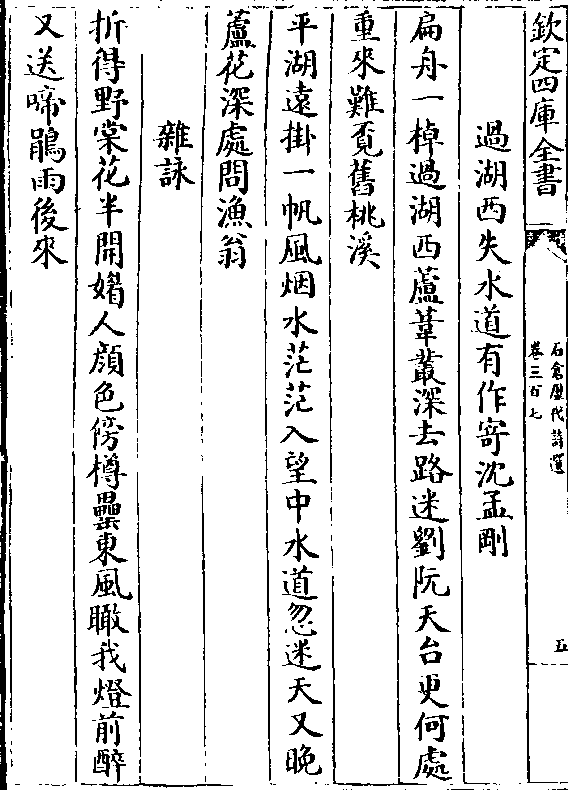 欽定四庫全書
石倉歷代詩選
卷三百七
五
過湖西失水道有作寄沈孟剛
扁舟一棹過湖西蘆葦叢深去路迷劉阮天台更何處
重來難覔舊桃溪
平湖遠掛一帆風烟水茫茫入望中水道忽迷天又晚
蘆花深處問漁翁
雜詠
折得野棠花半開媚人顔色傍樽罍東風瞰我燈前醉
又送啼鵑雨後來